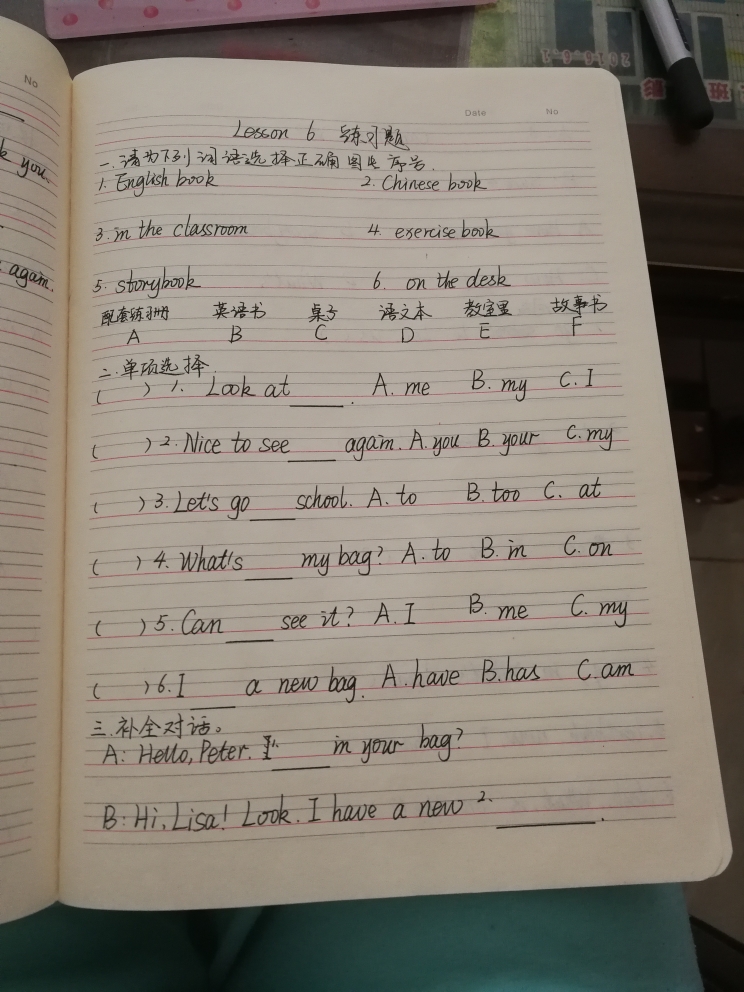 No
k you.
again.
2016-6-1
班
影
Date No
Lesson 6 练习题
一.请为下列词语选择正确图片序号.
1. English book 2. Chinese book
3. in the classroom 4. exercise book
5. storybook 6. on the desk
配套练习册 英语书 桌子 语文本 教室里 故事书
A B C D E F
二.单项选择.
( ) 1. Look at____. A. me B. my C. I
( ) 2. Nice to see____ again. A. you B. your C. my
( ) 3. Let's go____school. A. to B. too C. at
( ) 4. What's____ my bag? A. to B. in C. on
( ) 5. Can____ see it? A. I B. me C. my
( ) 6. I____ a new bag. A. have B. has C. am
三.补全对话。
A: Hello, Peter. 1.____ in your bag?
B: Hi, Lisa! Look. I have a new 2.________.